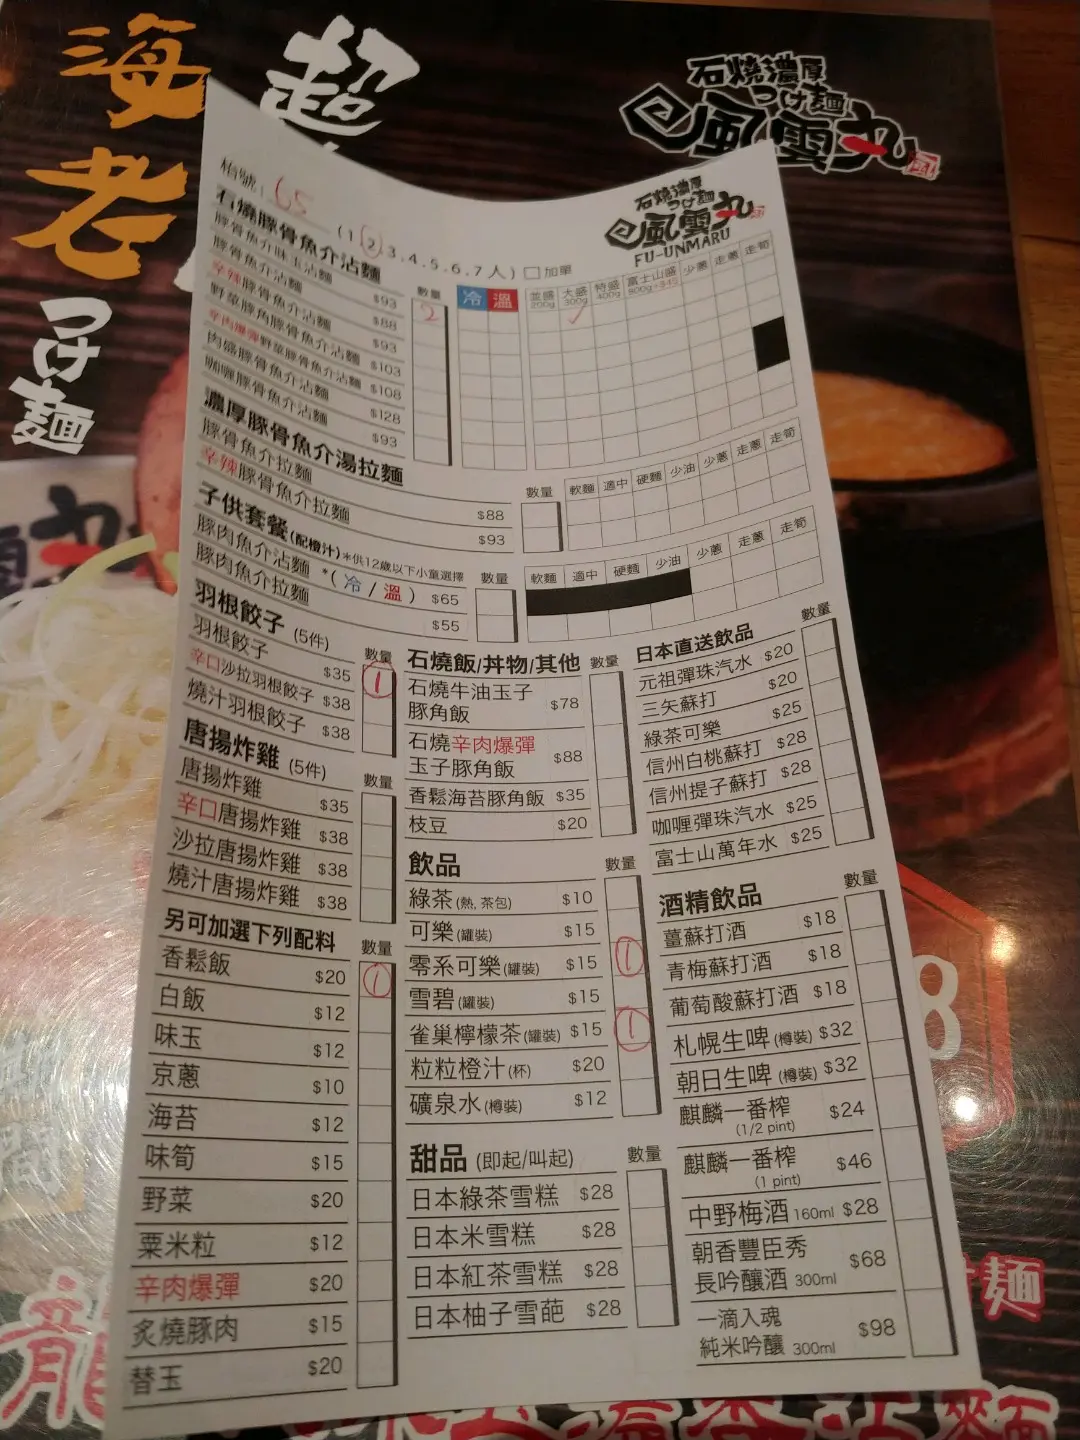 超
海老
つけ麺
石燒濃厚
つけ麺
風雲丸
風
枱號：65 (1.2.3.4.5.6.7人) 加單
石燒濃厚
つけ麺
風雲丸
FU-UNMARU
石燒豚骨魚介沾麵 數量 冷 溫 並盛 200g 大盛 300g 特盛 400g 富士山盛 800g+$45 少蔥 走蔥 走筍
豚骨魚介味玉沾麵 $93 2 ✓
豚骨魚介沾麵 $88
辛辣豚骨魚介沾麵 $93
野菜豚角豚骨魚介沾麵 $103
辛肉爆彈野菜豚骨魚介沾麵 $108
肉盛豚骨魚介沾麵 $128
咖喱豚骨魚介沾麵 $93
濃厚豚骨魚介湯拉麵 數量 軟麵 適中 硬麵 少油 少蔥 走蔥 走筍
豚骨魚介拉麵 $88
辛辣豚骨魚介拉麵 $93
子供套餐(配橙汁)*供12歲以下小童選擇 數量 軟麵 適中 硬麵 少油 少蔥 走蔥 走筍
豚肉魚介沾麵 *(冷/溫) $65
豚肉魚介拉麵 $55
羽根餃子 (5件) 數量
羽根餃子 $35 1
辛口沙拉羽根餃子 $38
燒汁羽根餃子 $38
唐揚炸雞 (5件) 數量
唐揚炸雞 $35
辛口唐揚炸雞 $38
沙拉唐揚炸雞 $38
燒汁唐揚炸雞 $38
另可加選下列配料 數量
香鬆飯 $20 1
白飯 $12
味玉 $12
京蔥 $10
海苔 $12
味筍 $15
野菜 $20
粟米粒 $12
辛肉爆彈 $20
炙燒豚肉 $15
替玉 $20
石燒飯/丼物/其他 數量
石燒牛油玉子
豚角飯 $78
石燒辛肉爆彈
玉子豚角飯 $88
香鬆海苔豚角飯 $35
枝豆 $20
飲品 數量
綠茶(熱, 茶包) $10
可樂(罐裝) $15
零系可樂(罐裝) $15 1
雪碧(罐裝) $15
雀巢檸檬茶(罐裝) $15 1
粒粒橙汁(杯) $20
礦泉水(樽裝) $12
甜品 (即起/叫起) 數量
日本綠茶雪糕 $28
日本米雪糕 $28
日本紅茶雪糕 $28
日本柚子雪葩 $28
日本直送飲品 數量
元祖彈珠汽水 $20
三矢蘇打 $20
綠茶可樂 $25
信州白桃蘇打 $28
信州提子蘇打 $28
咖喱彈珠汽水 $25
富士山萬年水 $25
酒精飲品 數量
薑蘇打酒 $18
青梅蘇打酒 $18
葡萄酸蘇打酒 $18
札幌生啤(樽裝) $32
朝日生啤(樽裝) $32
麒麟一番榨
(1/2 pint) $24
麒麟一番榨
(1 pint) $46
中野梅酒 160ml $28
朝香豐臣秀
長吟釀酒 300ml $68
一滴入魂
純米吟釀 300ml $98
8
麺
龍